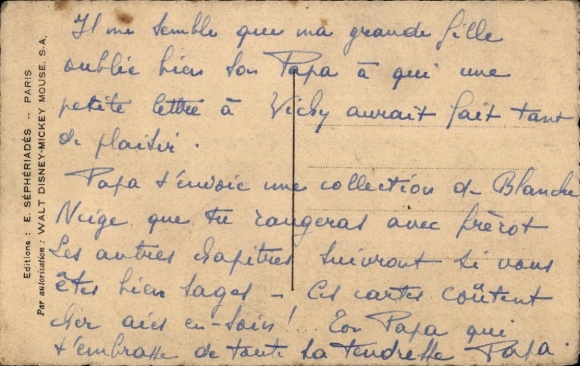 Editions : E. SÉPHÉRIADÈS -- PARIS
Par autorisation : WALT DISNEY-MICKEY MOUSE, S.A.
Il me semble que ma grande fille
oublie bien son Papa à qui une
petite lettre à Vichy aurait fait tant
de plaisir.
Papa t'envoie une collection de Blanche
Neige que tu rangeras avec frérot
Les autres chapitres suivront si vous
êtes bien sages - Ces cartes coûtent
cher aies en-soin !... Ton Papa qui
t'embrasse de toute sa tendresse Papa.